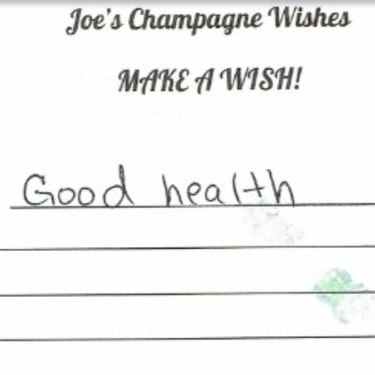 Joe's Champagne Wishes
MAKE A WISH!
Good health